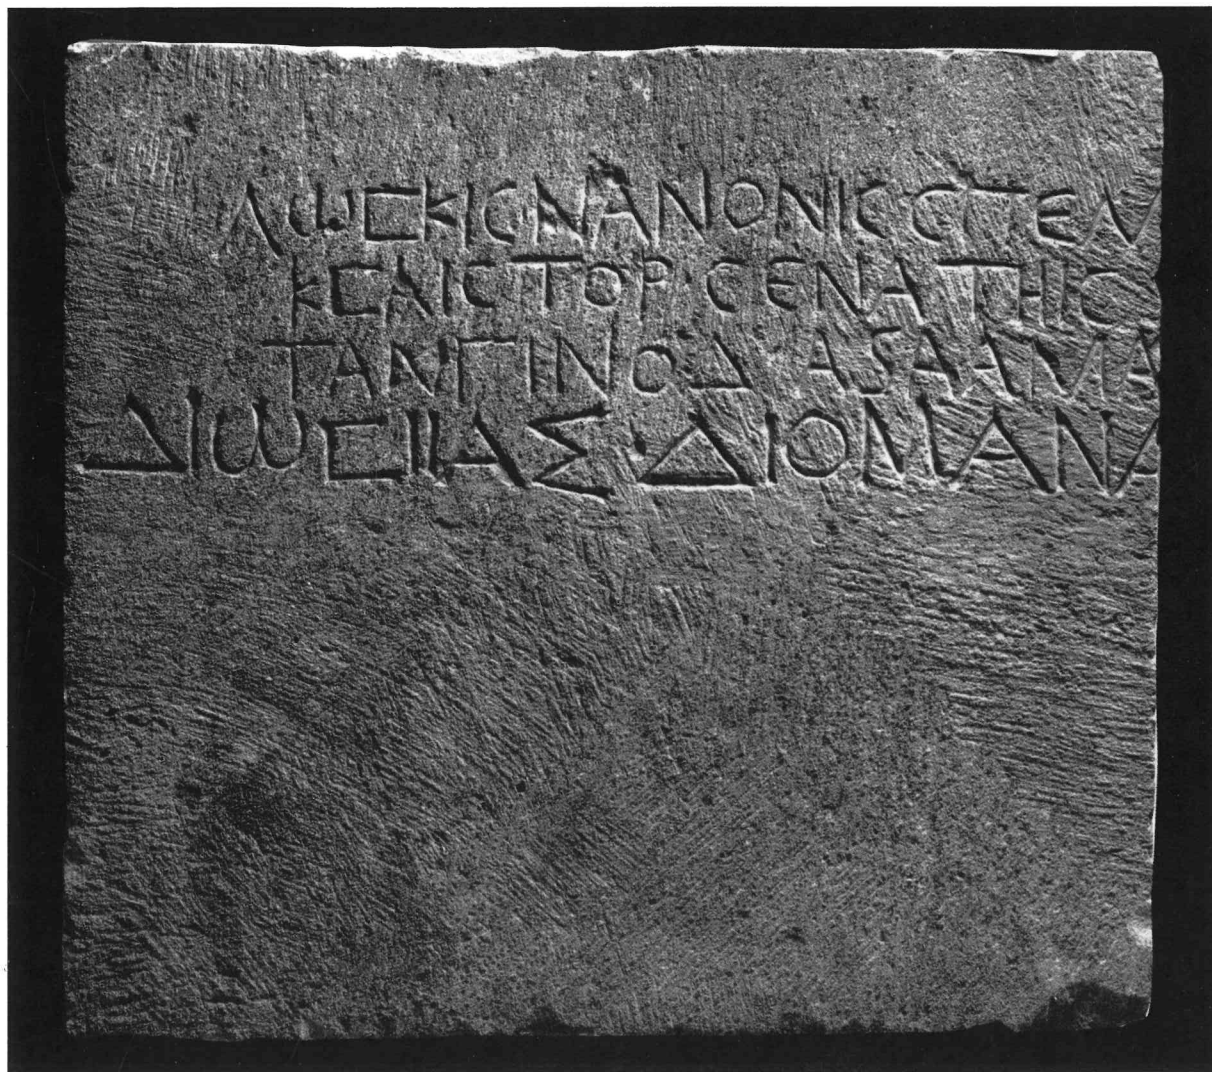 ΛωϜΚΙϹ ΝΑΝΟΝΙϹ ϹΠΕΛ
ΚϜΑΙϹΤΟΡ·ϹΕΝΑΤΗΙϹ
ΤΑΝΓΙΝΟΔ ΑSΑΑΜΑ
ΔΙωϜΙΙΑΣ·ΔΙΟΜΑΝΑ